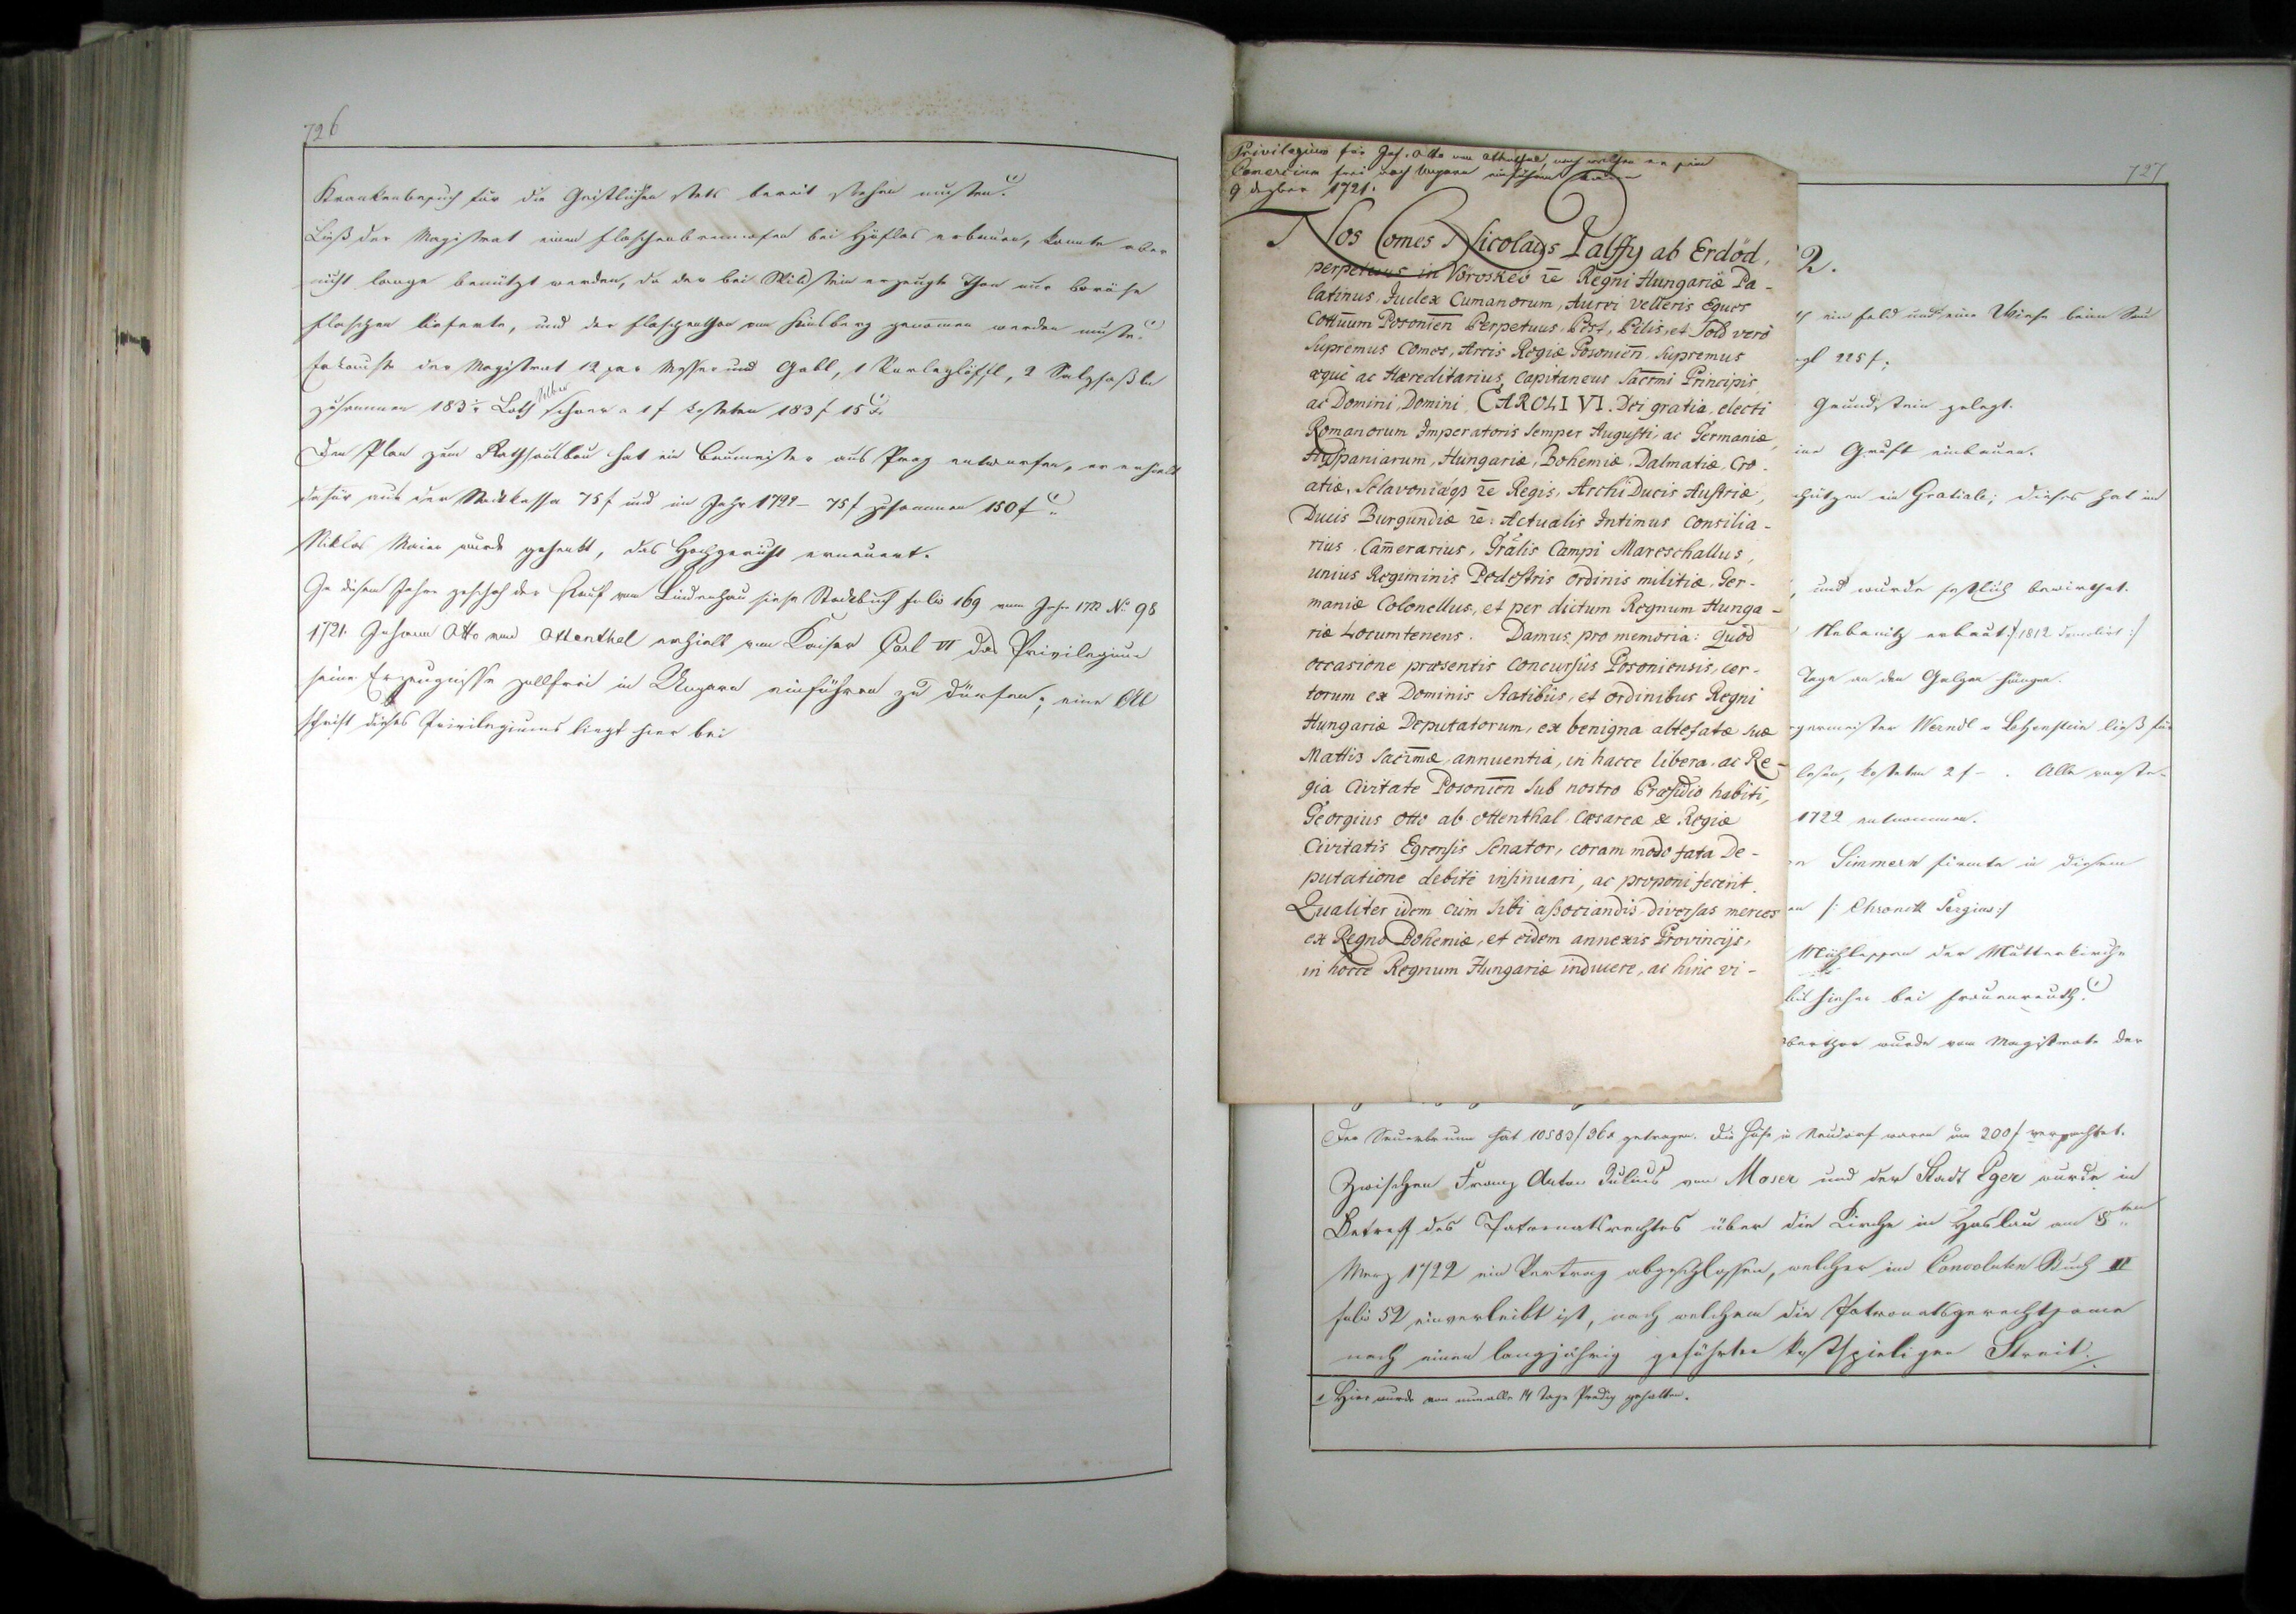 726
Krankenbesuch für die Geistlichen stets bereit stehen musten.
Ließ der Magistrat einen Flaschenbrennofen bei Höflas erbauen, konnte aber
nicht lange benützt werden, da der bei Wildstein erzeugte Thon nur poröse
Flaschen lieferte, und der Flaschenthon von genomen werden muste.
Erkaufte der Magistrat 12 par Messer und Gabl, 1 Vorleglöffl, 2 Salzfaßln
zusammen 183¼ Loth Silber schwer a 1 f kosteten 183 f 15
Den Plan zum Rathausbau hat ein Baumeister aus Prag entworfen, er erhielt
dafür aus der Stadtkassa 75 f und im Jahr 1722 – 75 f zusammen 150 f
Niklas Maier wurde gehenkt, das Hochgericht erneuert.
In diesem Jahre geschah der Kauf von Lindenhau siehe Stadtbuch folio 169 vom Jahr No 98
1721. Johann Otto von Ottenthal erhielt von Kaiser Carl VI das Privilegium
seine Erzeugnisse zollfrei in Ungarn einführen zu dürfen; eine Ab
schrift dieses Privilegiums liegt hier bei
Privilegium für Joh. Otto von Ottenthal, nach welchen er sein
Comercium frei nach Ungarn einführen kann
9 dezber 1721.
Nos Comes Nicolaus Palffy ab Erdöd,
perpetuus in Vöröskeö &c Regni Hungariæ Pa-
latinus, Judex Cumanorum, Aurei velleris Eques
Cottuum Posonien Perpetuus, Pest, Pilis, et Sold verò
Supremus Comes, Arcis Regiæ Posonien. Supremus
æquè ac Hæreditarius Capitaneus Sacrmi Principis
ac Domini, Domini CAROLI VI. Dei gratia, electi
Romanorum Imperatoris Semper Augusti, ac Germaniæ,
Hyspaniarum, Hungariæ, Bohemiæ, Dalmatiæ, Cro-
atiæ, Sclavoniæqs &c Regis, ArchiDucis Austriæ,
Ducis Burgundiæ &c: Actualis Intimus Consilia-
rius, Camerarius, Gralis Campi Mareschallus,
unius Regiminis Pedestris ordinis militiæ, Ger-
maniæ Colonellus, et per dictum Regnum Hunga-
riæ Locumtenens. Damus pro memoria: Quòd
occasione præsentis Concursûs Posoniensis, cer-
torum ex Dominis Statibus, et ordinibus Regni
Hungariæ Deputatorum, ex benigna altefatæ suæ
Mattis Sacrmæ, annuentia, in hacce libera, ac Re-
gia Civitate Posonien Sub nostro Præsidio habiti,
Georgius Otto ab Ottenthal Cæsareæ & Regiæ
Civitatis Egrensis Senator, coram modo fata De-
putatione debitè insinuari, ac proponi fecerit.
Qualiter idem cum sibi associandis, diversas merces
ex Regno Bohemiæ, et eidem annexis Provincijs,
in hocce Regnum Hungariæ inducere, ac hinc vi-
727
2.
ein Feld und eine Wiese beim
225 f;
Grundstein gelegt.
Gruft einbauen.
ein Gratiale; dieses hat im
und wurde festlich bewirthet.
Nebanitz erbaut /: 1812 demolirt :/
Tage an den Galgen hängen.
Werndl v Lehenstein ließ für
lesen, kosteten 2 f –. Alle
1722 entnommen.
Simmern firmte in diesem
/: Chronik Sergius :/
Mühlessen der Mutterkirche
bis hieher bei Frauenreuth.
wurde vom Magistrate der
Der Sauerbrunn hat 10583 f 36x getragen. Die Höfe in waren um 200 f verpachtet.
Zwischen Franz Anton Julius von Moser und der Stadt Eger wurde in
Betreff des Patronatsrechtes über die Kirche in Haslau am 8ten
Merz 1722 ein Vertrag abgeschlossen, welcher im Convoluten Buch II
folio 52 einverleibt ist, nach welchem die Patronatsgerechtsame
nach einen langjährig geführten kostspieligen Streit.
1 Hier wurde von nun alle 14 Tage Predig gehalten.